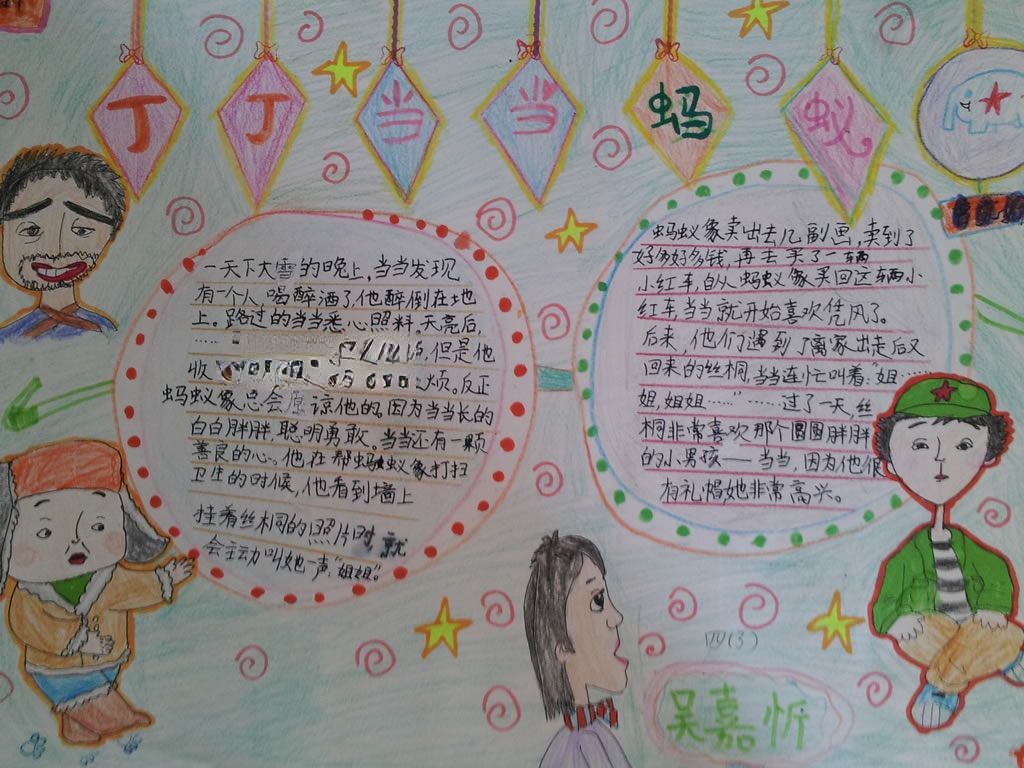 丁丁当当蚂蚁
一天下大雪的晚上,当当发现
有一个人,喝醉酒了,他醉倒在地
上。路过的当当悉心照料,天亮后,
……
但是他
收
烦。反正
蚂蚁象总会原谅他的,因为当当长的
白白胖胖,聪明勇敢。当当还有一颗
善良的心。他在帮蚂蚁象打扫
卫生的时候,他看到墙上
挂着丝桐的照片时,就
会主动叫她一声“姐姐”。
蚂蚁象卖出去几副画,卖到了
好多好多钱,再去买了一辆
小红车,自从蚂蚁象买回这辆小
红车,当当就开始喜欢凭风了。
后来,他们遇到了离家出走后又
回来的丝桐,当当连忙叫着:“姐……
姐,姐姐……”……过了一天,丝
桐非常喜欢那个圆圆胖胖
的小男孩——当当,因为他很
有礼帽她非常高兴。
四(3)
吴嘉忻